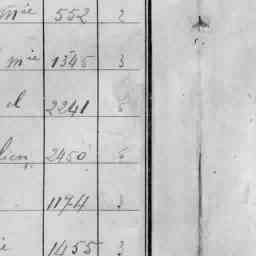 mie 552 2
mie 1345 3
el 2241
lien 2450
1174 3
ie 1455 3